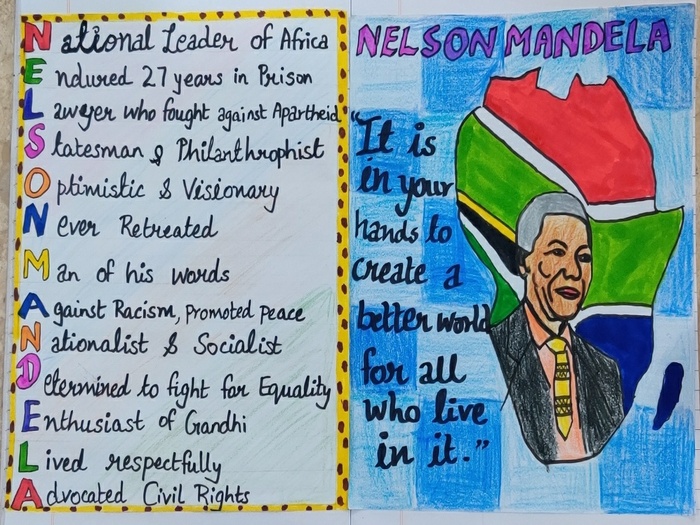 National Leader of Africa
Endured 27 years in Prison
Lawyer who fought against Apartheid
Statesman & Philanthrophist
Optimistic & Visionary
Never Retreated
Man of his words
Against Racism, Promoted Peace
Nationalist & Socialist
Determined to fight for Equality
Enthusiast of Gandhi
Lived respectfully
Advocated Civil Rights
NELSON MANDELA
"It is
in your
hands to
create a
better world
for all
who live
in it."